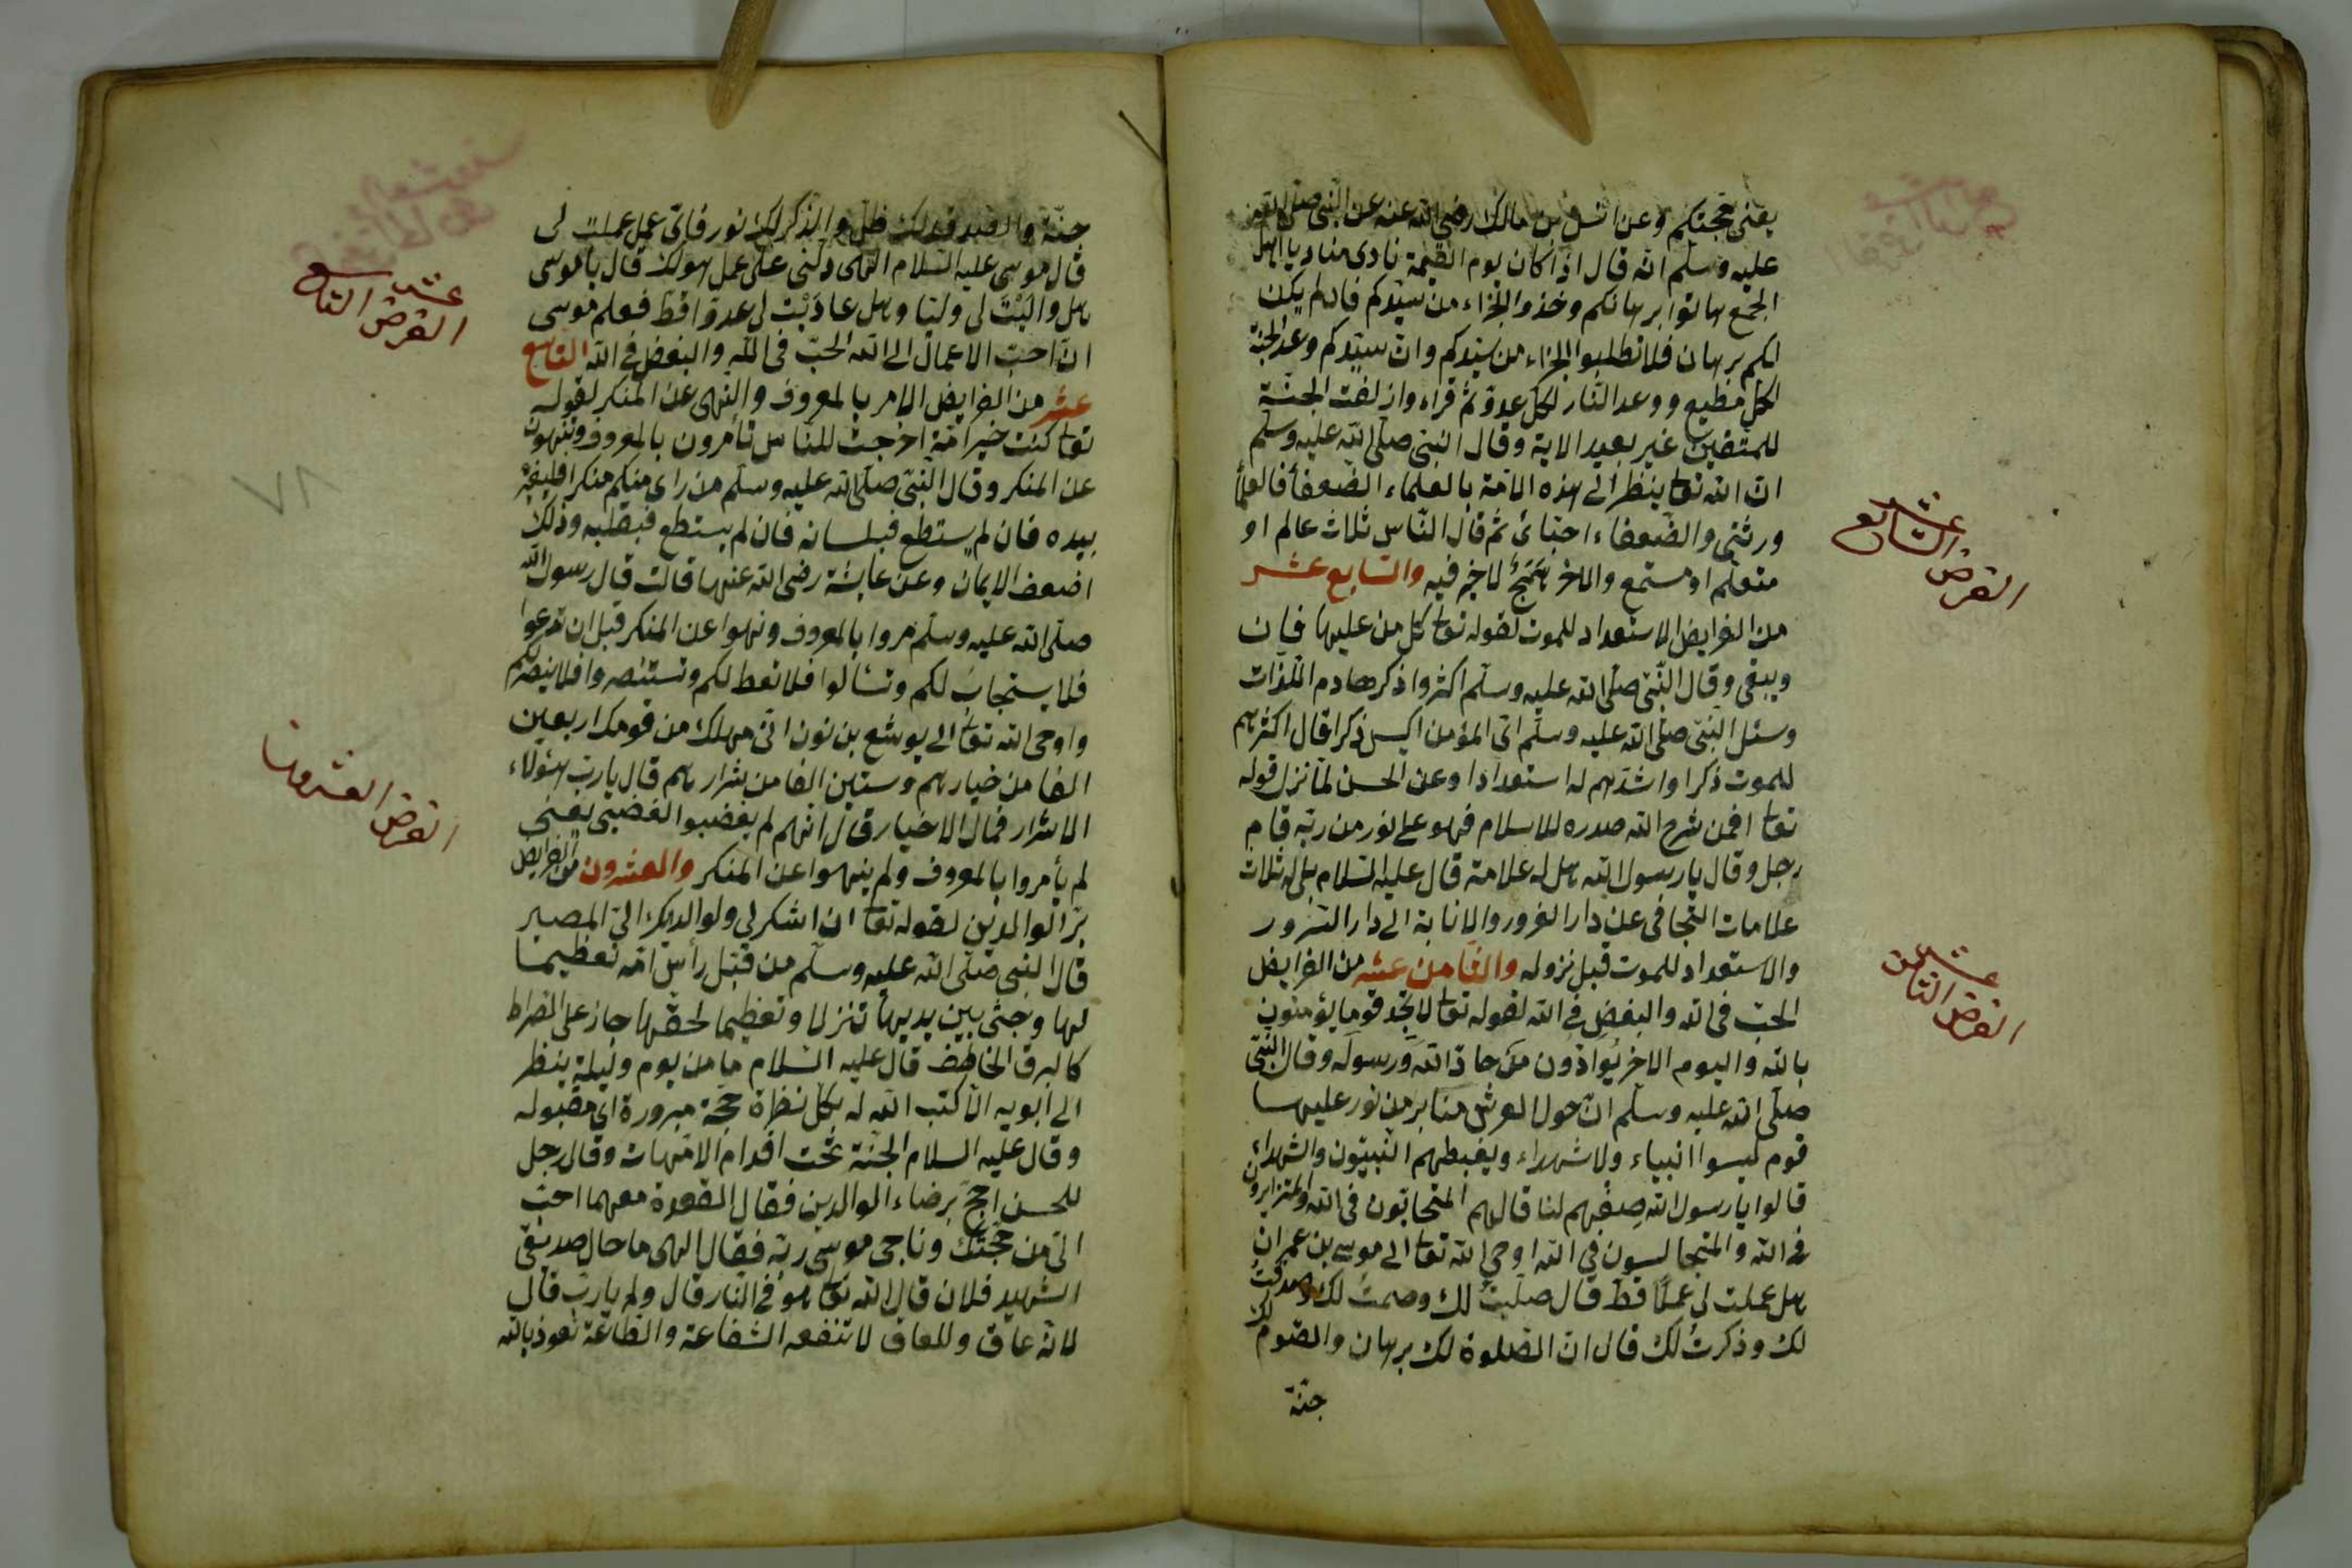 يعنى حجتكم وعن انس بن مالك رضى الله عنه عن النبى صلى الله
عليه وسلم انه قال اذا كان يوم القيمة نادى مناد يا اهل
الجمع هاتوا برهانكم وخذوا الجزاء من سيدكم فان لم يكن
لكم برهان فلا تطلبوا الجزاء من سيدكم وان سيدكم وعد الجنة
لكل مطيع ووعد النار لكل عدو ثم قراء وازلفت الجنة
للمتقين غير بعيد الاية وقال النبى صلى الله عليه وسلم
ان الله تعا ينظر الى هذه الامة بالعلماء الضعفا فالعلما
ورثتى والضعفاء احبائى ثم قال الناس ثلاث عالم او
متعلم او مستمع والاخر همج لا خير فيه والسابع عشر
من الفرايض الاستعداد للموت لقوله تعا كل من عليها فان
ويبقى وقال النبى صلى الله عليه وسلم اكثروا ذكر هادم اللذات
وسئل النبى صلى الله عليه وسلم اى المؤمن اكيس ذكرا قال اكثرهم
للموت ذكرا واشدهم له استعدادا وعن الحسن لما نزل قوله
تعا افمن شرح الله صدره للاسلام فهو على نور من ربه قام
رجل وقال يا رسول الله هل له علامة قال عليه السلام بلى له ثلاث
علامات التجافى عن دار الغرور والانابة الى دار السرور
والاستعداد للموت قبل نزوله والثامن عشر من الفرايض
الحب فى الله والبغض فى الله لقوله تعا لا تجد قوما يؤمنون
بالله واليوم الاخر يوادون من حاد الله ورسوله وقال النبى
صلى الله عليه وسلم ان حول العرش منابر من نور عليها
قوم ليسوا انبياء ولا شهداء ويغبطهم النبيون والشهداء
قالوا يا رسول الله صفهم لنا قال هم المتحابون فى الله والمتزاورون
فى الله والمتجالسون فى الله اوحى الله تعا الى موسى بن عمران
هل عملت لى عملا قط قال صليت لك وصمت لك وصدقت
لك وذكرت لك قال ان الصلوة لك برهان والصوم لك
جنة
الفرض السابع عشر
الفرض الثامن عشر
جنة والصدقة لك ظل والذكر لك نور فاى عمل عملت لى
قال موسى عليه السلام الهى دلنى على عمل هو لك قال يا موسى
هل واليت لى وليا وهل عاديت لى عدوا قط فعلم موسى
ان احب الاعمال الى الله الحب فى الله والبغض فى الله التاسع
عشر من الفرايض الامر بالمعروف والنهى عن المنكر لقوله
تعا كنتم خير امة اخرجت للناس تأمرون بالمعروف وتنهون
عن المنكر وقال النبى صلى الله عليه وسلم من راى منكم منكرا فليغيره
بيده فان لم يستطع فبلسانه فان لم يستطع فبقلبه وذلك
اضعف الايمان وعن عايشة رضى الله عنها قالت قال رسول الله
صلى الله عليه وسلم مروا بالمعروف ونهوا عن المنكر قبل ان تدعوا
فلا يستجاب لكم وتسألوا فلا تعط لكم وتستنصروا فلا ينصركم
واوحى الله تعا الى يوشع بن نون انى مهلك من قومك اربعين
الفا من خيارهم وستين الفا من شرارهم قال يا رب هؤلاء
الاشرار فما ل الاخيار قال انهم لم يغضبوا لغضبى يعنى
لم يأمروا بالمعروف ولم ينهوا عن المنكر والعشرون من الفرايض
بر الوالدين لقوله تعا ان اشكر لى ولوالديك الى المصير
قال النبى صلى الله عليه وسلم من قبل رأس امه تعظيما
لها وجثى بين يديها تنزلا وتعظيما لحقها جاز على الصراط
كالبرق الخاطف قال عليه السلام ما من يوم وليلة ينظر
الى ابويه الا كتب الله له بكل نظرة حجة مبرورة اى مقبوله
وقال عليه السلام الجنة تحت اقدام الامهات وقال رجل
للحسن احج برضاء الوالدين فقال القعدة معهما احب
الى من حجتك وناجى موسى ربه فقال الهى ما حال صديقى
الشهيد فلان قال الله تعا هو فى النار قال ولم يا رب قال
لانه عاق وللعاق لا تنفعه الشفاعة والطاعة نعوذ بالله
الفرض التاسع عشر
٧٨
الفرض العشرون